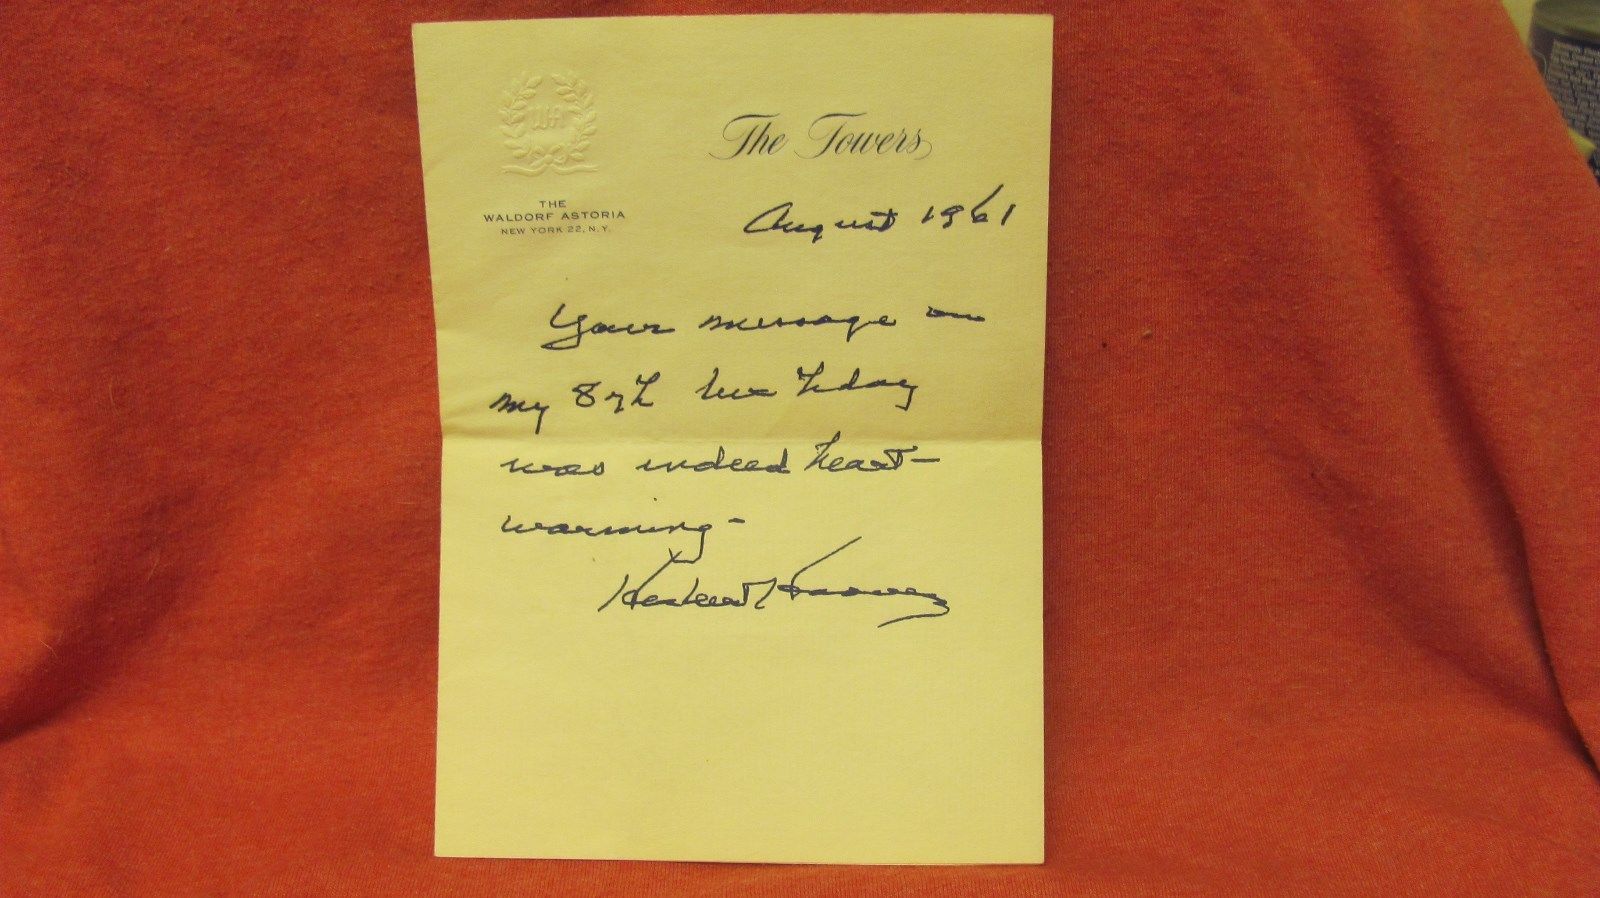 WA
The Towers
THE
WALDORF ASTORIA
NEW YORK 22, N.Y.
August 1961
Your message on
my 87th birthday
was indeed heart-
warming-
Herbert Hoover